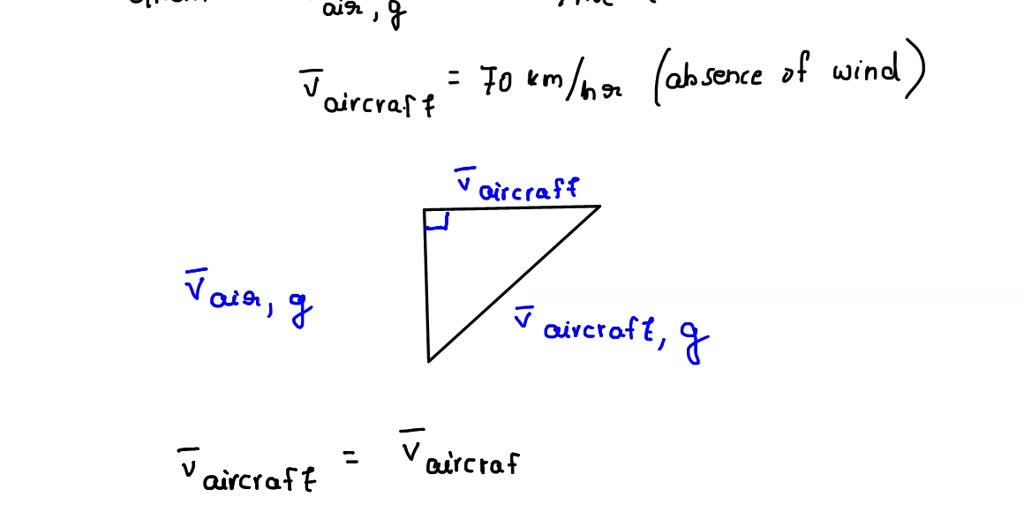 air, g
v̅ aircraft = 70 km/hr (absence of wind)
v̅ aircraft
v̅ air, g
v̅ aircraft, g
v̅ aircraft = v̅ aircraf